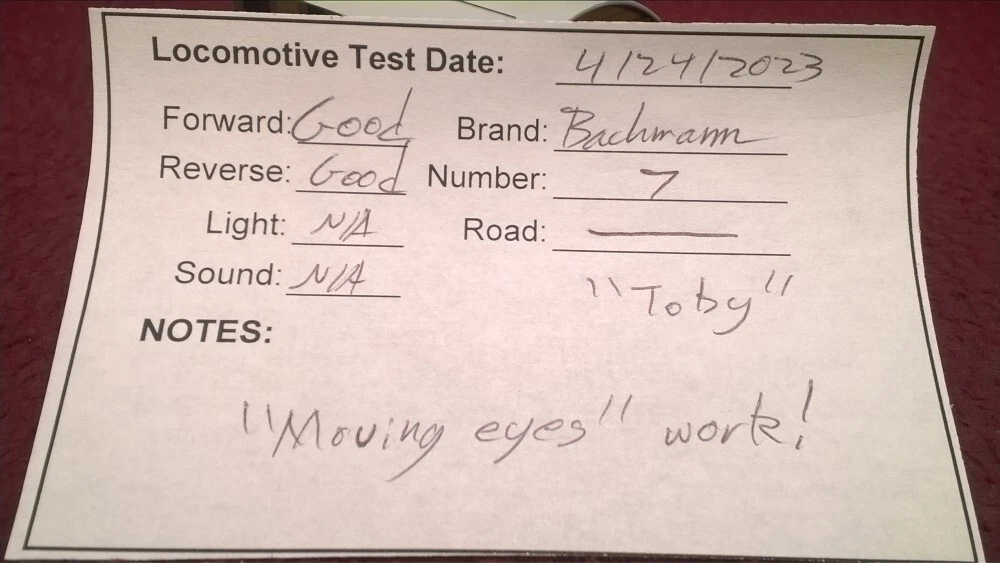 Locomotive Test Date: 4/24/2023
Forward: Good Brand: Bachmann
Reverse: Good Number: 7
Light: N/A Road: —
Sound: N/A "Toby"
NOTES:
"Moving eyes" work!